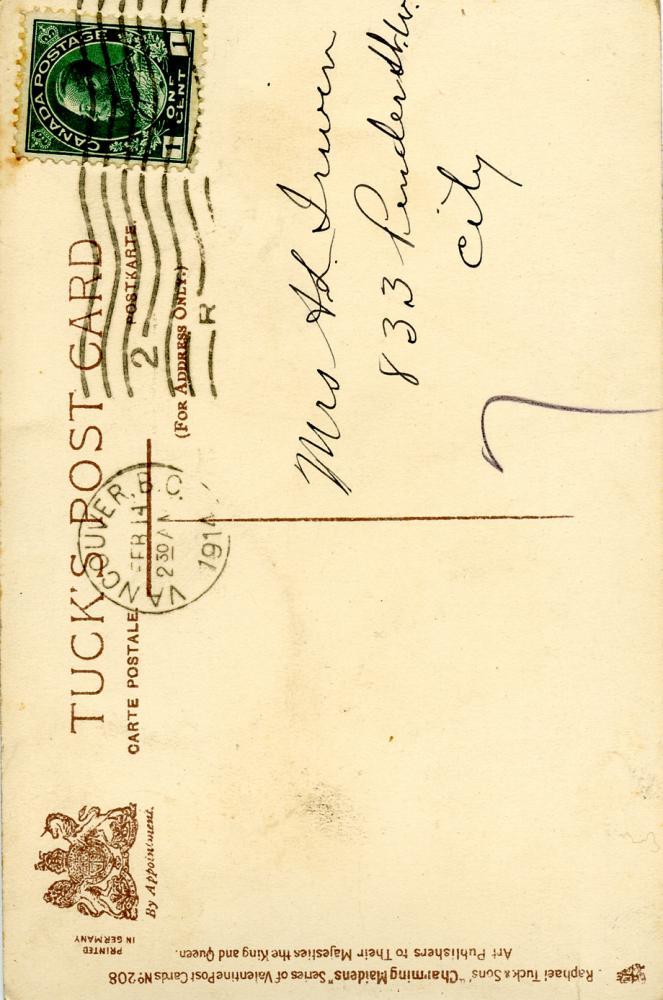 TUCK'S POST CARD
CARTE POSTALE.
POSTKARTE.
(FOR ADDRESS ONLY.)
By Appointment.
PRINTED
IN GERMANY
CANADA POSTAGE
1 ONE CENT 1
VANCOUVER. B.C.
FEB 14
2 30 A
1914
2
R
Mrs Irwin
833 Pender St. W.
City
Raphael Tuck & Sons' "Charming Maidens" Series of Valentine Post Cards No 208
Art Publishers to Their Majesties the King and Queen.